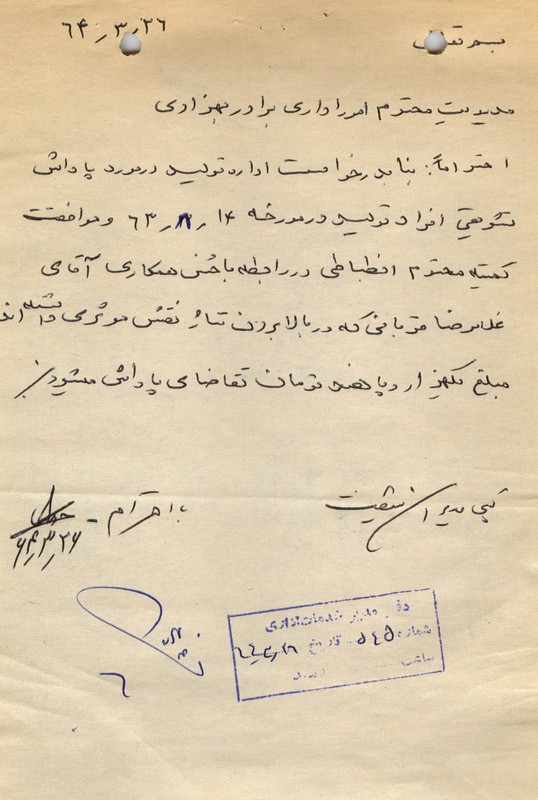 ۶۴٫۳٫۲۶
بسمه تعالی
مدیریت محترم امور اداری برادر بهزادی
احتراماً: بنا بدرخواست اداره تولید در مورد پاداش
تشویقی افراد تولید در مورخه ۱۴٫۸٫۶۳ و موافقت
کمیته محترم انضباطی در رابطه با حسن همکاری آقای
غلامرضا قربانی که در بالا بردن تناژ نقش موثری داشته‌اند
مبلغ یکهزار و پانصد تومان تقاضای پاداش میشود.
با احترام -
۶۴٫۳٫۲۶
کپی مدیران شیفت
دفتر مدیر خدمات اداری
شماره ۵۴۵ تاریخ
ساعت